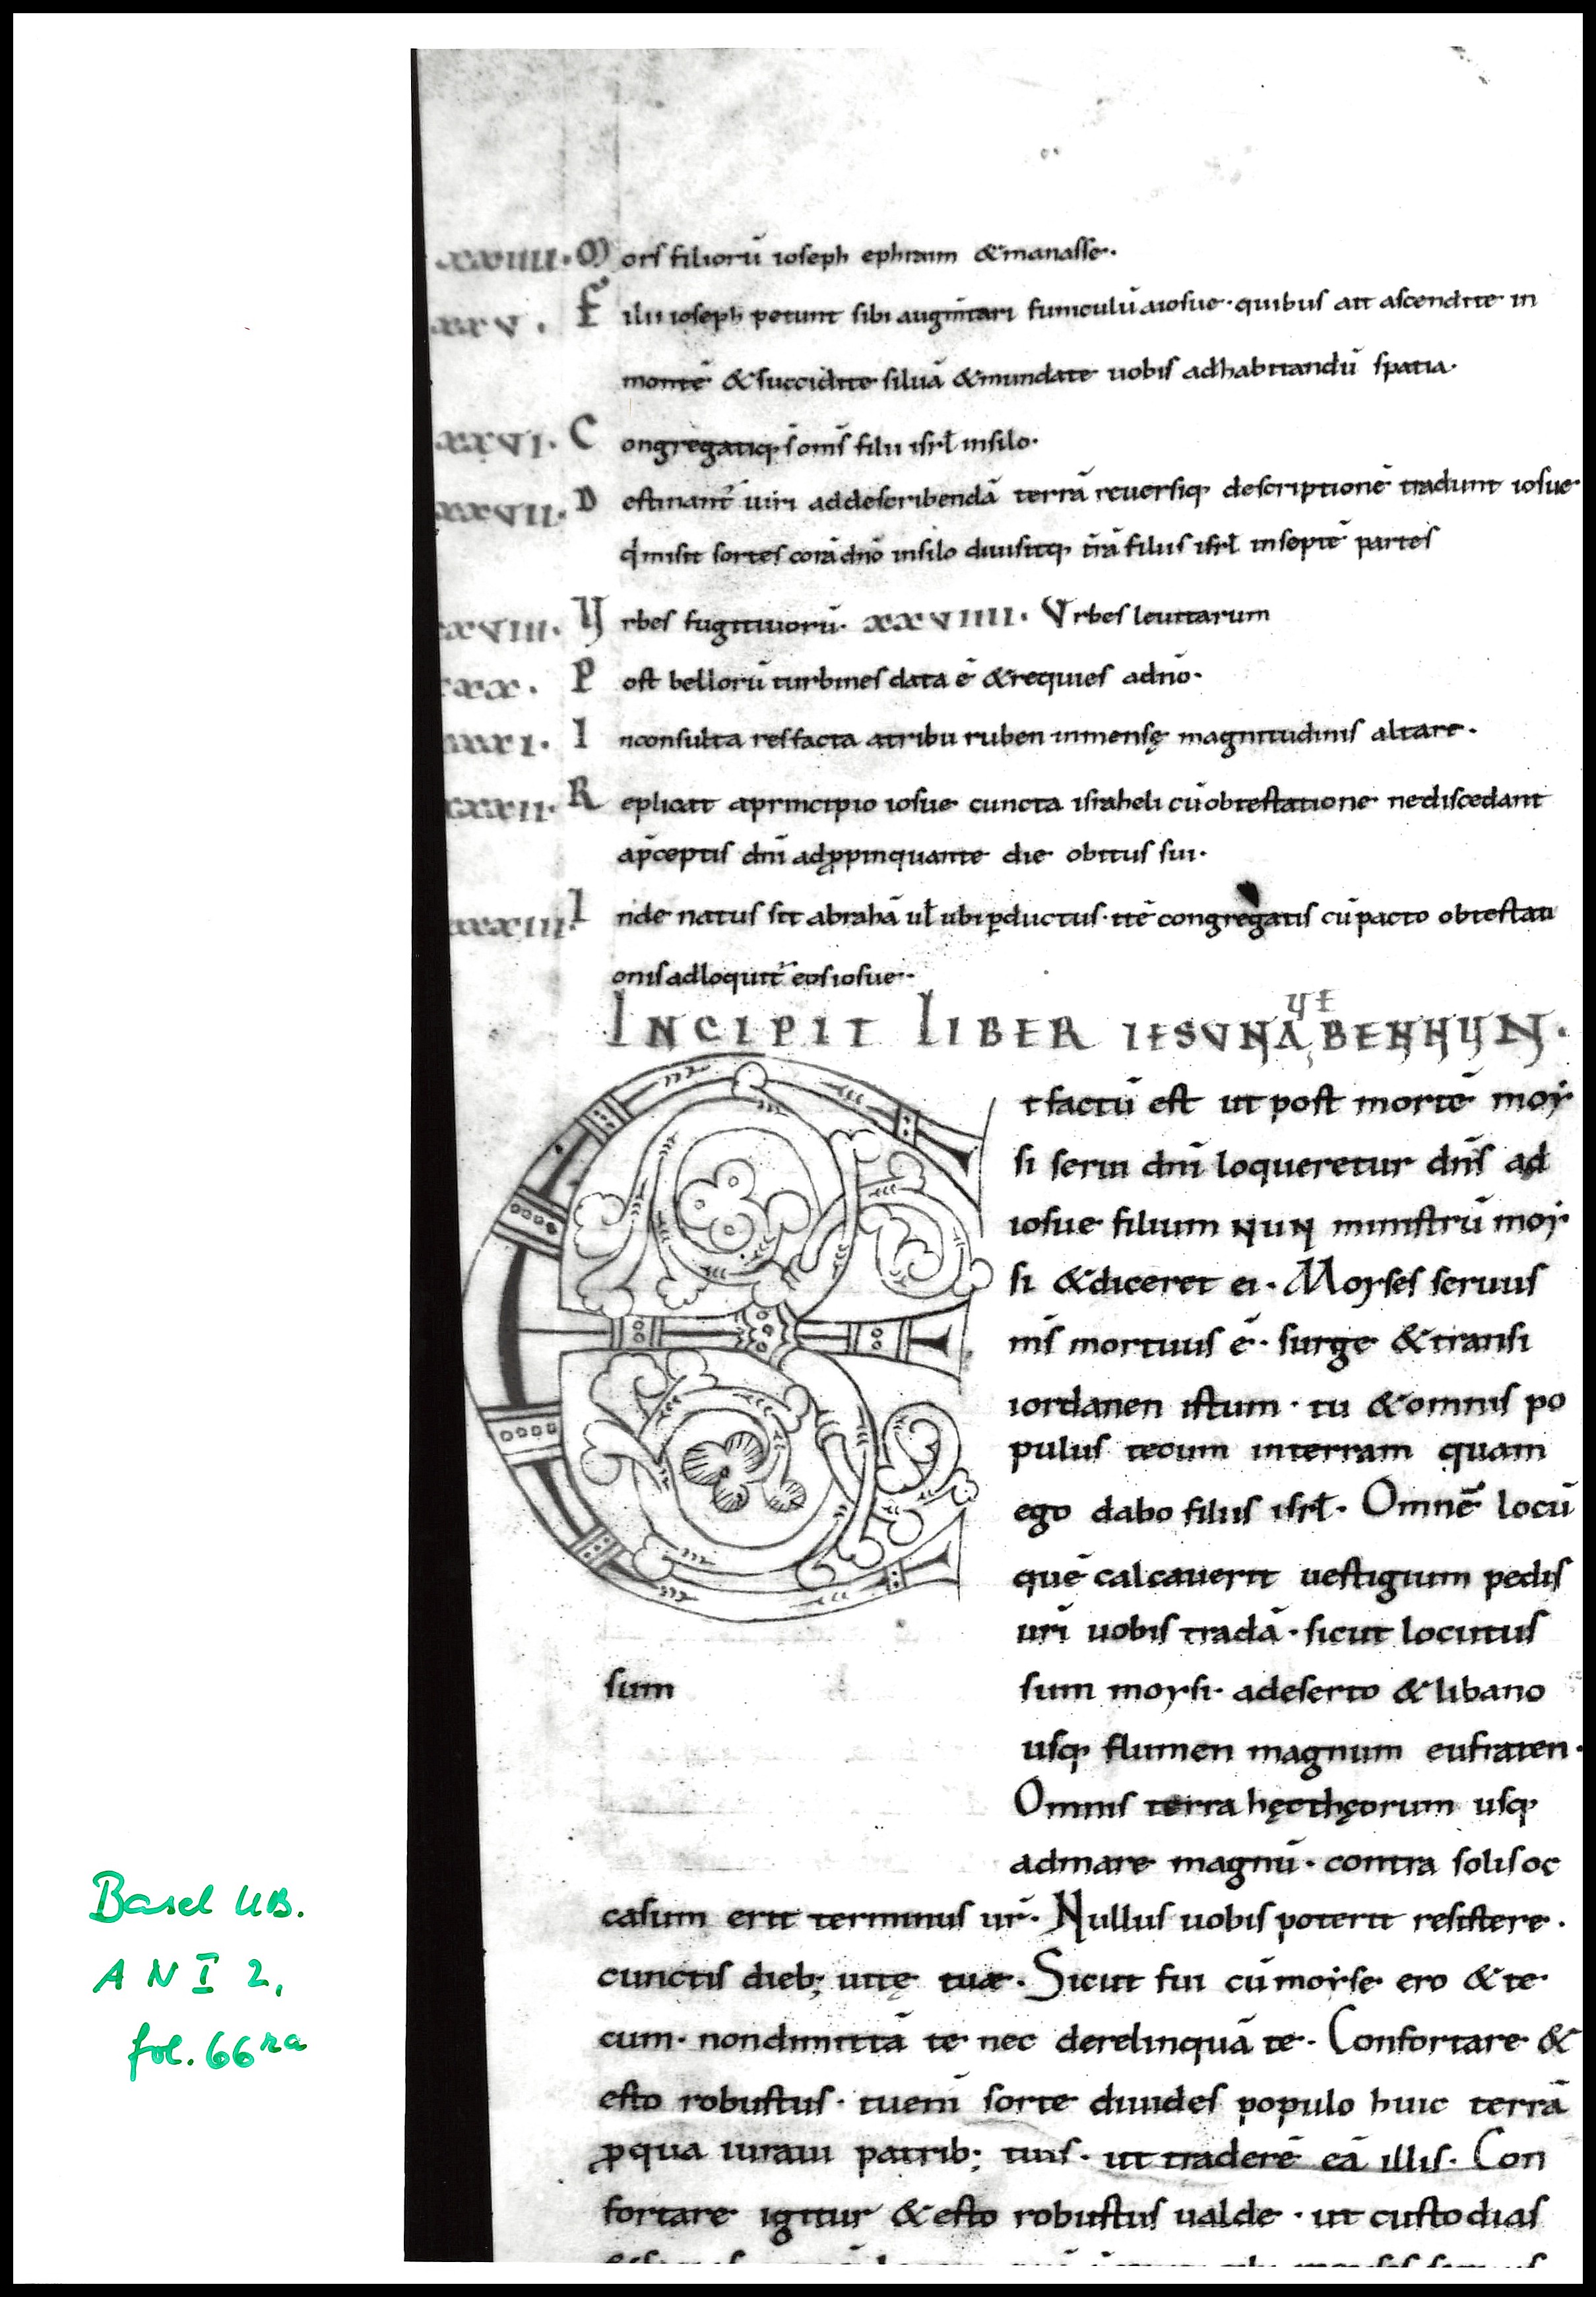 xxiiii. Mors filiorū ioseph ephraim & manasse.
xxv. Filii ioseph petunt sibi augmtari funiculū a iosue. quibus ait ascendite in
montē & succidite siluā & mundate uobis ad habitandū spatia.
xxvi. Congregatiq; s̄ om̄s filii isrł in silo.
xxvii. Destinant̄ uiri ad describendā terrā reuersiq; descriptionē tradunt iosue
q̇ misit sortes corā dn̄o in silo diuisitq; t̄rā filiis isrł in septē partes
xxviii. Vrbes fugitiuorū. xxviiii. Vrbes leuitarum
xxx. Post bellorū turbines data ē & requies a dn̄o.
xxxi. Inconsulta res facta a tribu ruben inmensę magnitudinis altare.
xxxii. Replicat a principio iosue cuncta israheli cū obtestatione ne discedant
a p̄ceptis dn̄i adꝓpinquante die obitus sui.
xxxiii. Inde natus sit abrahā ul̄ ubi ꝑductus. itē congregatis cū pacto obtestati
onis adloquit̄ eos iosue.
INCIPIT LIBER IESV NAVE BENNVN.
Et factū est ut post mortē moy
si serui dn̄i loqueretur dn̄s ad
iosue filium NUN ministrū moy
si & diceret ei. Moyses seruus
m̄s mortuus ē. surge & transi
iordanen istum. tu & omnis po
pulus tecum in terram quam
ego dabo filiis isrł. Omnē locū
quē calcauerit uestigium pedis
ur̄i uobis tradā. sicut locutus
sum
sum moysi. a deserto & libano
usq; flumen magnum eufraten.
Omnis terra hęcthęorum usq;
ad mare magnū. contra solis oc
casum erit terminus ur̄. Nullus uobis poterit resistere.
cunctis dieb; uitę tuæ. Sicut fui cū moyse ero & te
cum. non dimittā te nec derelinquā te. Confortare &
esto robustus. tu eni̅ sorte diuides populo huic terrā
ꝓ qua iuraui patrib; tuis. ut traderē eā illis. Con
fortare igitur & esto robustus ualde. ut custodias
Basel UB.
A N I 2,
fol. 66ra